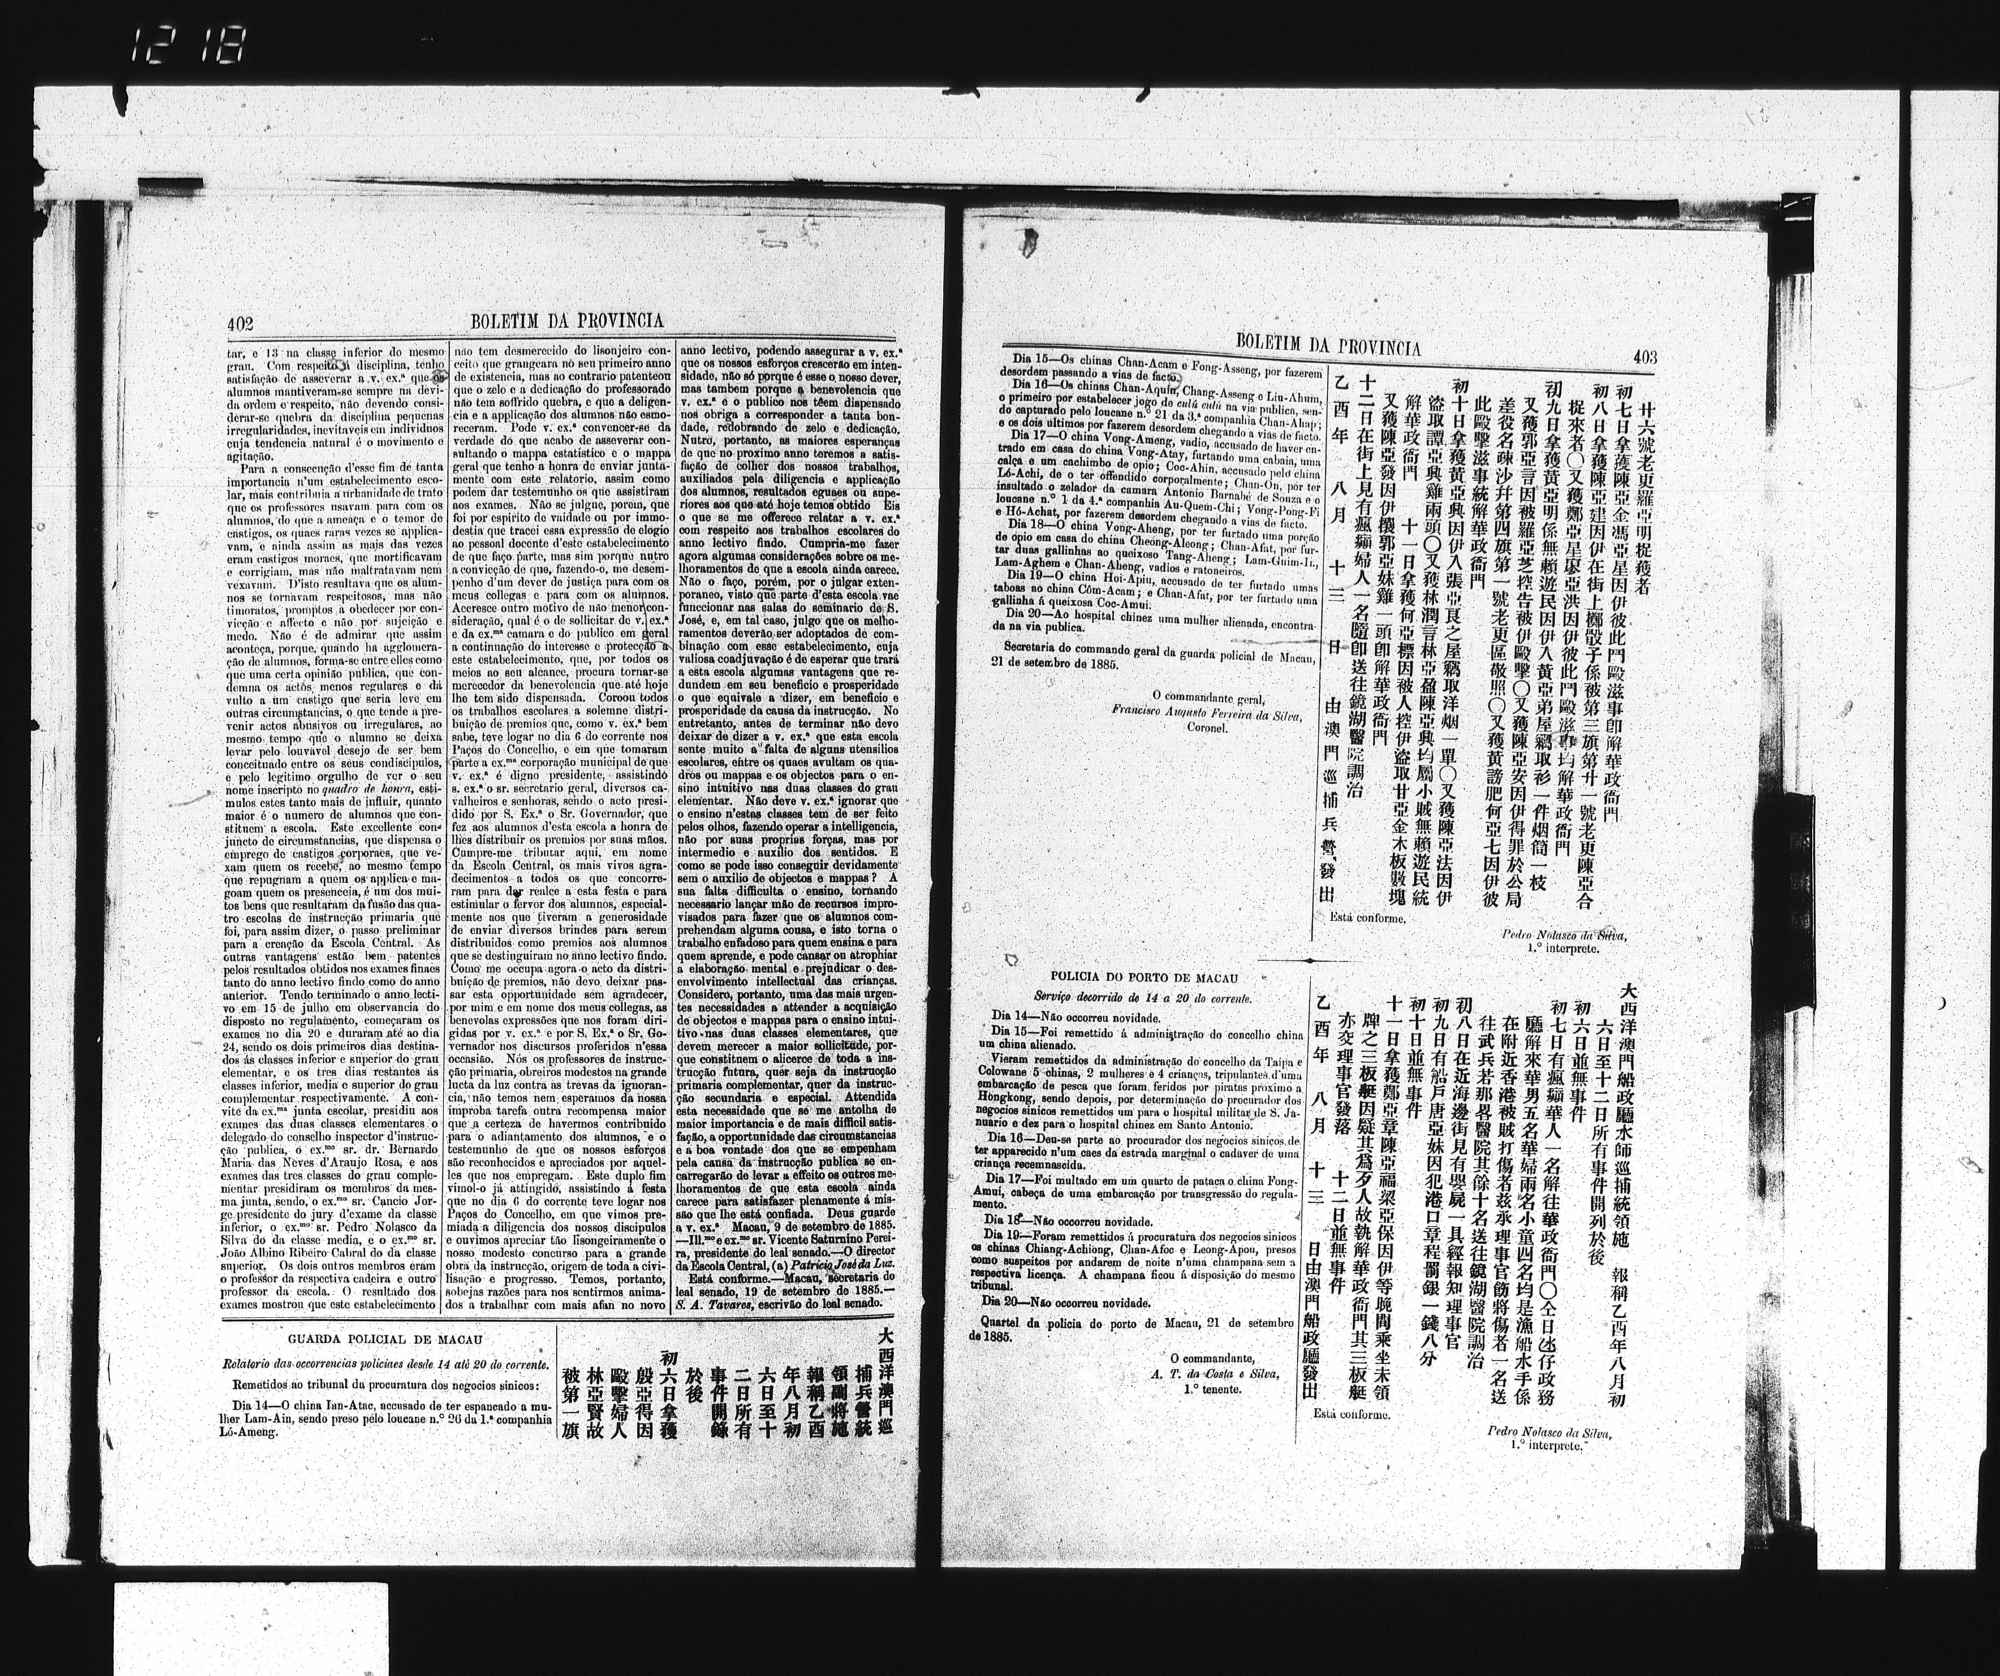 1218
402
BOLETIM DA PROVINCIA
tar, e 13 na classe inferior do mesmo
grau. Com respeito á disciplina, tenho
satisfação de asseverar a v. ex.ª que os
alumnos mantiveram-se sempre na devi-
da ordem e respeito, não devendo consi-
derar-se quebra da disciplina pequenas
irregularidades, inevitaveis em individuos
cuja tendencia natural é o movimento e
agitação.
Para a consecução d'esse fim de tanta
importancia n'um estabelecimento esco-
lar, mais contribuia a urbanidade de trato
que os professores usavam para com os
alumnos, do que a ameaça e o temor de
castigos, os quaes raras vezes se applica-
vam, e ainda assim as mais das vezes
eram castigos moraes, que mortificavam
e corrigiam, mas não maltratavam nem
vexavam. D'isto resultava que os alum-
nos se tornavam respeitosos, mas não
timoratos, promptos a obedecer por con-
vicção e affecto e não por sujeição e
medo. Não é de admirar que assim
aconteça, porque, quando ha agglomera-
ção de alumnos, forma-se entre elles como
que uma certa opinião publica, que con-
demna os actos menos regulares e dá
vulto a um castigo que seria leve em
outras circumstancias, o que tende a pre-
venir actos abusivos ou irregulares, ao
mesmo tempo que o alumno se deixa
levar pelo louvavel desejo de ser bem
conceituado entre os seus condiscipulos,
e pelo legitimo orgulho de ver o seu
nome inscripto no quadro de honra, esti-
mulos estes tanto mais de influir, quanto
maior é o numero de alumnos que con-
stituem a escola. Este excellente con-
juncto de circumstancias, que dispensa o
emprego de castigos corporaes, que ve-
xam quem os recebe, ao mesmo tempo
que repugnam a quem os applica e ma-
goam quem os presenceia, é um dos mui-
tos bens que resultaram da fusão das qua-
tro escolas de instrucção primaria que
foi, para assim dizer, o passo preliminar
para a creação da Escola Central. As
outras vantagens estão bem patentes
pelos resultados obtidos nos exames finaes
tanto do anno lectivo findo como do anno
anterior. Tendo terminado o anno lecti-
vo em 15 de julho em observancia do
disposto no regulamento, começaram os
exames no dia 20 e duraram até ao dia
24, sendo os dois primeiros dias destina-
dos ás classes inferior e superior do grau
elementar, e os tres dias restantes ás
classes inferior, media e superior do grau
complementar respectivamente. A con-
vite da ex.ma junta escolar, presidiu aos
exames das duas classes elementares o
delegado do conselho inspector d'instruc-
ção publica, o ex.mo sr. dr. Bernardo
Maria das Neves d'Araujo Rosa, e aos
exames das tres classes do grau comple-
mentar presidiram os membros da mes-
ma junta, sendo, o ex.mo sr. Cancio Jor-
ge presidente do jury d'exame da classe
inferior, o ex.mo sr. Pedro Nolasco da
Silva do da classe media, e o ex.mo sr.
João Albino Ribeiro Cabral do da classe
superior. Os dois outros membros eram
o professor da respectiva cadeira e outro
professor da escola. O resultado dos
exames mostrou que este estabelecimento
não tem desmerecido do lisonjeiro con-
ceito que grangeara no seu primeiro anno
de existencia, mas ao contrario patenteou
que o zelo e a dedicação do professorado
não tem soffrido quebra, e que a deligen-
cia e a applicação dos alumnos não esmo-
receram. Póde v. ex.ª convencer-se da
verdade do que acabo de asseverar con-
sultando o mappa estatistico e o mappa
geral que tenho a honra de enviar junta-
mente com este relatorio, assim como
podem dar testemunho os que assistiram
aos exames. Não se julgue, porem, que
foi por espirito de vaidade ou por immo-
destia que tracei essa expressão de elogio
ao pessoal docente d'este estabelecimento
de que faço parte, mas sim porque nutro
a convicção de que, fazendo-o, me desem-
penho d'um dever de justiça para com os
meus collegas e para com os alumnos.
Accresce outro motivo de não menor con-
sideração, qual é o de sollicitar de v. ex.ª
e da ex.ma camara e do publico em geral
a continuação do interesse e protecção a
este estabelecimento, que, por todos os
meios ao seu alcance, procura tornar-se
merecedor da benevolencia que até hoje
lhe tem sido dispensada. Coroou todos
os trabalhos escolares a solemne distri-
buição de premios que, como v. ex.ª bem
sabe, teve logar no dia 6 do corrente nos
Paços do Concelho, e em que tomaram
parte a ex.ma corporação municipal de que
v. ex.ª é digno presidente, assistindo
s. ex.ª o sr. secretario geral, diversos ca-
valheiros e senhoras, sendo o acto presi-
dido por S. Ex.ª o Sr. Governador, que
fez aos alumnos d'esta escola a honra de
lhes distribuir os premios por suas mãos.
Cumpre-me tributar aqui, em nome
da Escola Central, os mais vivos agra-
decimentos a todos os que concorre-
ram para dar realce a esta festa e para
estimular o fervor dos alumnos, especial-
mente aos que tiveram a generosidade
de enviar diversos brindes para serem
distribuidos como premios aos alumnos
que se destinguiram no anno lectivo findo.
Como me occupa agora o acto da distri-
buição de premios, não devo deixar pas-
sar esta opportunidade sem agradecer,
por mim e em nome dos meus collegas, as
benevolas expressões que nos foram diri-
gidas por v. ex.ª e por S. Ex.ª o Sr. Go-
vernador nos discursos proferidos n'essa
occasião. Nós os professores de instruc-
ção primaria, obreiros modestos na grande
lucta da luz contra as trevas da ignoran-
cia, não temos nem esperamos da nossa
improba tarefa outra recompensa maior
que a certeza de havermos contribuido
para o adiantamento dos alumnos, e o
testemunho de que os nossos esforços
são reconhecidos e apreciados por aquel-
les que nos empregam. Este duplo fim
vimol-o já attingido, assistindo á festa
que no dia 6 do corrente teve logar nos
Paços do Concelho, em que vimos pre-
miada a diligencia dos nossos discipulos
e ouvimos apreciar tão lisongeiramente o
nosso modesto concurso para a grande
obra da instrucção, origem de toda a civi-
lisação e progresso. Temos, portanto,
sobejas razões para nos sentirmos anima-
dos a trabalhar com mais afan no novo
anno lectivo, podendo assegurar a v. ex.ª
que os nossos esforços crescerão em inten-
sidade, não só porque é esse o nosso dever,
mas tambem porque a benevolencia que
v. ex.ª e o publico nos têem dispensado
nos obriga a corresponder a tanta bon-
dade, redobrando de zelo e dedicação.
Nutro, portanto, as maiores esperanças
de que no proximo anno teremos a satis-
fação de colher dos nossos trabalhos,
auxiliados pela diligencia e applicação
dos alumnos, resultados eguaes ou supe-
riores aos que até hoje temos obtido Eis
o que se me offerece relatar a v. ex.ª
com respeito aos trabalhos escolares do
anno lectivo findo. Cumpria-me fazer
agora algumas considerações sobre os me-
lhoramentos de que a escola ainda carece.
Não o faço, porém, por o julgar extem-
poraneo, visto que parte d'esta escola vae
funccionar nas salas do seminario de S.
José, e, em tal caso, julgo que os melho-
ramentos deverão ser adoptados de com-
binação com esse estabelecimento, cuja
valiosa coadjuvação é de esperar que trará
a esta escola algumas vantagens que re-
dundem em seu beneficio e prosperidade
o que equivale a dizer, em beneficio e
prosperidade da causa da instrucção. No
entretanto, antes de terminar não devo
deixar de dizer a v. ex.ª que esta escola
sente muito a falta de alguns utensilios
escolares, entre os quaes avultam os qua-
dros ou mappas e os objectos para o en-
sino intuitivo nas duas classes do grau
elementar. Não deve v. ex.ª ignorar que
o ensino n'estas classes tem de ser feito
pelos olhos, fazendo operar a intelligencia,
não por suas proprias forças, mas por
intermedio e auxilio dos sentidos. E
como se póde isso conseguir devidamente
sem o auxilio de objectos e mappas? A
sua falta difficulta o ensino, tornando
necessario lançar mão de recursos impro-
visados para fazer que os alumnos com-
prehendam alguma cousa, e isto torna o
trabalho enfadoso para quem ensina e para
quem aprende, e póde cansar ou atrophiar
a elaboração mental e prejudicar o des-
envolvimento intellectual das crianças.
Considero, portanto, uma das mais urgen-
tes necessidades a attender a acquisição
de objectos e mappas para o ensino intui-
tivo nas duas classes elementares, que
devem merecer a maior sollicitude, por-
que constituem o alicerce de toda a ins-
trucção futura, quer seja da instrucção
primaria complementar, quer da instruc-
ção secundaria e especial. Attendida
esta necessidade que se me antolha de
maior importancia e de mais difficil satis-
fação, a opportunidade das circumstancias
e a boa vontade dos que se empenham
pela causa da instrucção publica se en-
carregarão de levar a effeito os outros me-
lhoramentos de que esta escola ainda
carece para satisfazer plenamente á mis-
são que lhe está confiada. Deus guarde
a v. ex.ª Macau, 9 de setembro de 1885.
—Ill.mo e ex.mo sr. Vicente Saturnino Perei-
ra, presidente do leal senado.—O director
da Escola Central, (a) Patricio José da Luz.
Está conforme.—Macau, secretaria do
leal senado, 19 de setembro de 1885.—
S. A. Tavares, escrivão do leal senado.
GUARDA POLICIAL DE MACAU
Relatorio das occorrencias policiaes desde 14 até 20 do corrente.
Remetidos ao tribunal da procuratura dos negocios sinicos:
Dia 14—O china Ian-Atac, accusado de ter espancado a mu-
lher Lam-Ain, sendo preso pelo loucane n.º 26 da 1.ª companhia
Ló-Ameng.
大西洋澳門巡
捕兵營統
領副將施
報稱乙酉
年八月初
六日至十
二日所有
事件開錄
於後
初六日拿獲
殷亞得因
毆擊婦人
林亞賢故
被第一旗
BOLETIM DA PROVINCIA
403
Dia 15—Os chinas Chan-Acam e Fong-Asseng, por fazerem
desordem passando a vias de facto.
Dia 16—Os chinas Chan-Aquin, Chang-Asseng e Liu-Ahum,
o primeiro por estabelecer jogo de culú culú na via publica, sen-
do capturado pelo loucane n.º 21 da 3.ª companhia Chan-Ahap;
e os dois ultimos por fazerem desordem chegando a vias de facto.
Dia 17—O china Vong-Ameng, vadio, accusado de haver en-
trado em casa do china Vong-Atay, furtando uma cabaia, uma
calça e um cachimbo de opio; Coc-Ahin, accusado pelo china
Ló-Achi, de o ter offendido corporalmente; Chan-On, por ter
insultado o zelador da camara Antonio Barnabé de Souza e o
loucane n.º 1 da 4.ª companhia Au-Quem-Chi; Vong-Pong-Fi
e Hó-Achat, por fazerem desordem chegando a vias de facto.
Dia 18—O china Vong-Aheng, por ter furtado uma porção
de opio em casa do china Cheong-Aleong; Chan-Afat, por fur-
tar duas gallinhas ao queixoso Tang-Aheng; Lam-Guim-Ii,
Lam-Aghem e Chan-Aheng, vadios e ratoneiros.
Dia 19—O china Hoi-Apiu, accusado de ter furtado umas
taboas ao china Côm-Acam; e Chan-Afat, por ter furtado uma
gallinha á queixosa Coc-Amui.
Dia 20—Ao hospital chinez uma mulher alienada, encontra-
da na via publica.
Secretaria do commando geral da guarda policial de Macau,
21 de setembro de 1885.
O commandante geral,
Francisco Augusto Ferreira da Silva,
Coronel.
廿六號老更羅亞明捉獲者
初七日拿獲陳亞金馮亞星因伊彼此鬥毆滋事卽解華政衙門
初八日拿獲陳亞建因伊在街上擲骰子係被第三旗第廿一號老更陳亞合
捉來者〇又獲鄭亞星廖亞洪因伊彼此鬥毆滋事均解華政衙門
初九日拿獲黃亞明係無賴遊民因伊入黃亞弟屋竊取衫一件烟筒一枝
又獲郭亞言因被羅亞芝控告被伊毆擊〇又獲陳亞安因伊得罪於公局
差役名疎沙幷第四旗第一號老更區敬照〇又獲黃謗肥何亞七因伊彼
此毆擊滋事統解華政衙門
初十日拿獲黃亞興因伊入張亞良之屋竊取洋烟一單〇又獲陳亞法因伊
盜取譚亞興雞兩頭〇又獲林潤言林亞盈陳亞興均屬小賊無賴遊民統
解華政衙門 十一日拿獲何亞標因被人控伊盜取甘亞金木板數塊
又獲陳亞發因伊攘郭亞妹雞一頭卽解華政衙門
十二日在街上見有瘋癲婦人一名隨卽送往鏡湖醫院調治
乙酉年 八月 十三 日 由澳門巡捕兵營發出
Está conforme.
Pedro Nolasco da Silva,
1.º interprete.
POLICIA DO PORTO DE MACAU
Serviço decorrido de 14 a 20 do corrente.
Dia 14—Não occorreu novidade.
Dia 15—Foi remettido á administração do concelho china
um china alienado.
Vieram remettidos da administração do concelho da Taipa e
Colowane 5 chinas, 2 mulheres e 4 crianças, tripulantes d'uma
embarcação de pesca que foram feridos por piratas proximo a
Hongkong, sendo depois, por determinação do procurador dos
negocios sinicos remettidos um para o hospital militar de S. Ja-
nuario e dez para o hospital chinez em Santo Antonio.
Dia 16—Deu-se parte ao procurador dos negocios sinicos de
ter apparecido n'um caes da estrada marginal o cadaver de uma
criança recemnascida.
Dia 17—Foi multado em um quarto de pataca o china Fong-
Amui, cabeça de uma embarcação por transgressão do regula-
mento.
Dia 18—Não occorreu novidade.
Dia 19—Foram remettidos á procuratura dos negocios sinicos
os chinas Chiang-Achiong, Chan-Afoc e Leong-Apou, presos
como suspeitos por andarem de noite n'uma champana sem a
respectiva licença. A champana ficou á disposição do mesmo
tribunal.
Dia 20—Não occorreu novidade.
Quartel da policia do porto de Macau, 21 de setembro
de 1885.
O commandante,
A. T. da Costa e Silva,
1.º tenente.
大西洋澳門船政廳水師巡捕統領施 報稱乙酉年八月初
六日至十二日所有事件開列於後
初六日並無事件
初七日有瘋癲華人一名解往華政衙門〇仝日氹仔政務
廳解來華男五名華婦兩名小童四名均是漁船水手係
在附近香港被賊打傷者茲承理事官飭將傷者一名送
往武兵若那畧醫院其餘十名送往鏡湖醫院調治
初八日在近海邊街見有嬰屍一具經報知理事官
初九日有船戶唐亞妹因犯港口章程罰銀一錢八分
初十日並無事件
十一日拿獲鄭亞章陳亞福梁亞保因伊等晚間乘坐未領
牌之三板艇因疑其為歹人故執解華政衙門其三板艇
亦交理事官發落 十二日並無事件
乙酉年 八月 十三 日由澳門船政廳發出
Está conforme.
Pedro Nolasco da Silva,
1.º interprete.